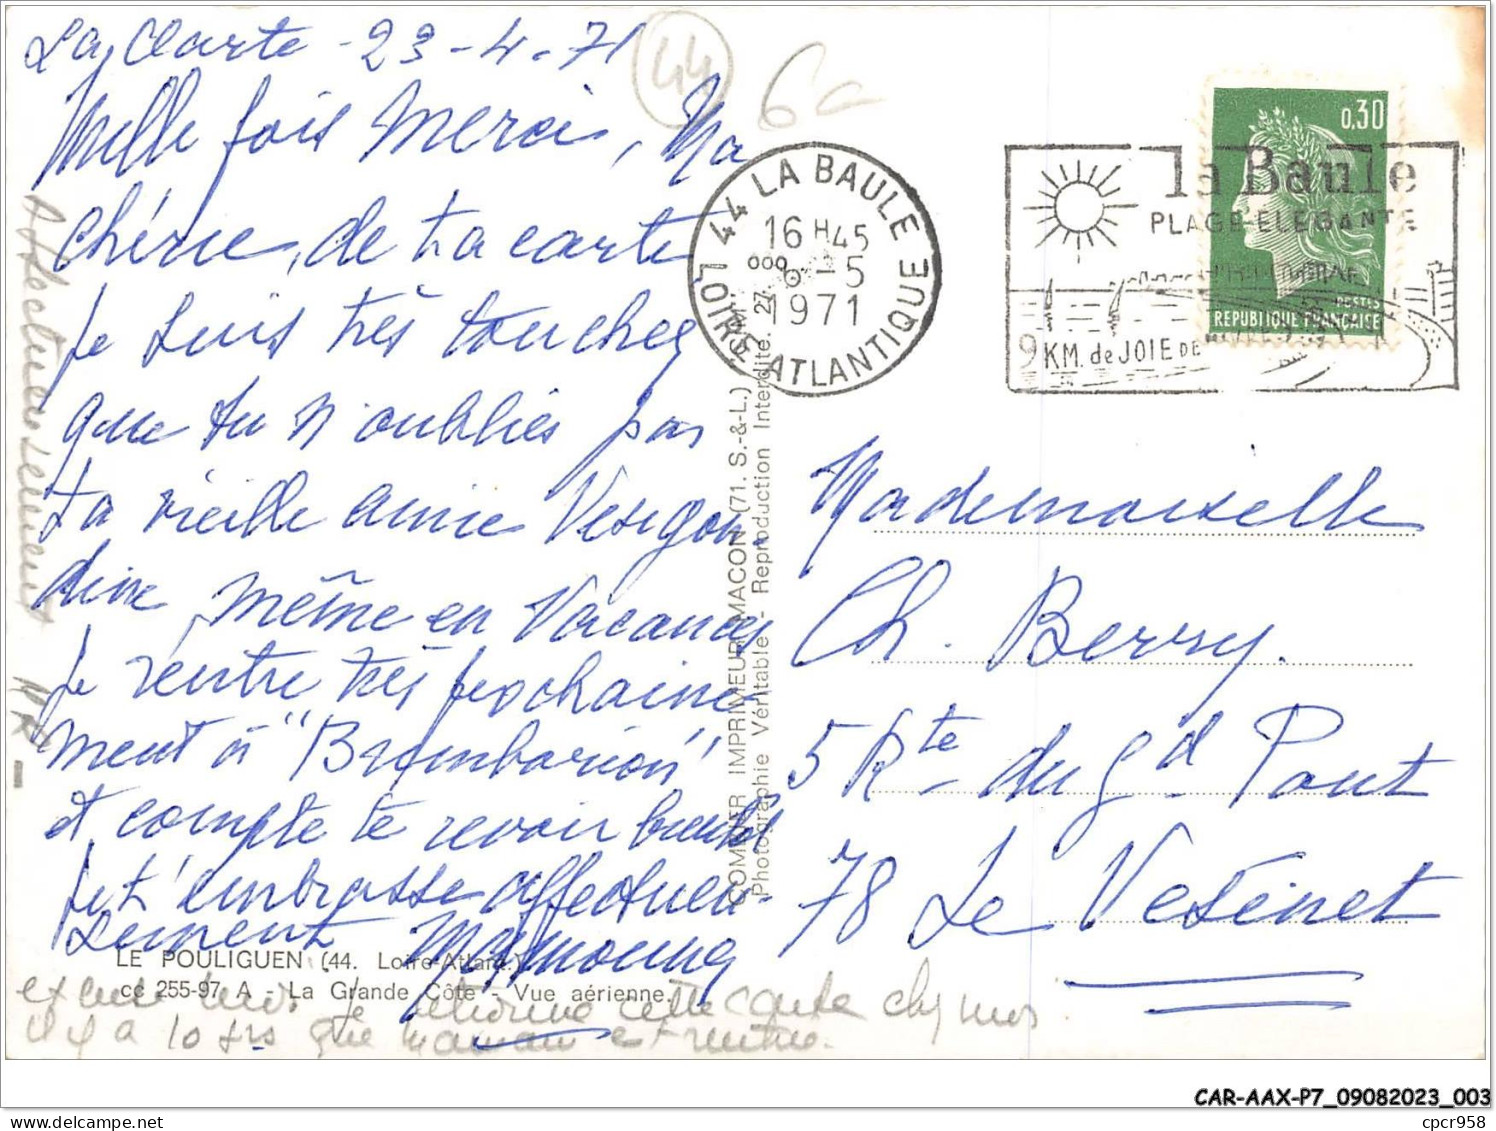 La Clarte - 23-4-71
Mille fois merci, Ma
chérie, de ta carte
je suis très touchée
que tu n'oublies pas
ta vieille amie Vésigon-
dine, même en vacances
je rentre très prochaine
ment à "Bramborion"
et compte te revoir bientôt
je t'embrasse affectueu-
sement Mamoune
Affectueusement
44
6
44 LA BAULE
16 H45
6-5
1971
LOIRE ATLANTIQUE
0,30
POSTES
REPUBLIQUE FRANÇAISE
la Baule
PLAGE ELEGANTE
9 KM. de JOIE DE
COMBIER IMPRIMEUR MACON (71. S.-&-L.)
Photographie Véritable - Reproduction Interdite.
Mademoiselle
Ch. Berry.
5 Rte du Gd Pont
78 Le Vésinet
LE POULIGUEN (44. Loire-Atlant.)
cc 255-97 A - La Grande Côte - Vue aérienne.
excuse moi je retrouve cette carte chez moi
il y a 10 jrs que maman est rentrée.
CAR-AAX-P7_09082023_003
cpcr958